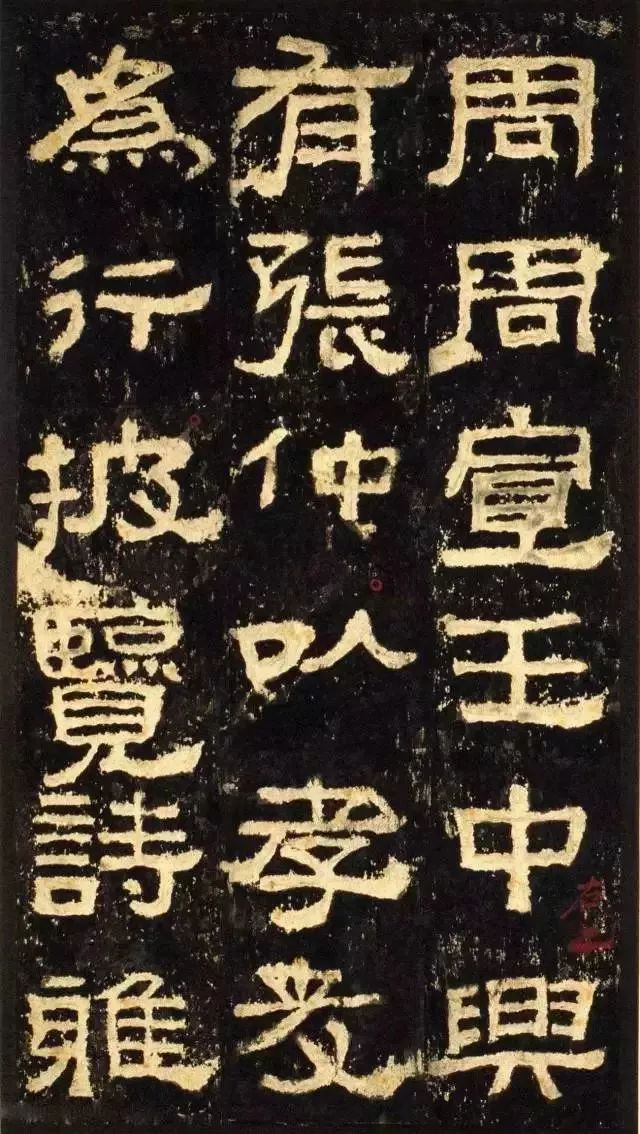 周周宣王中興
有張仲以孝友
爲行披覽詩雅